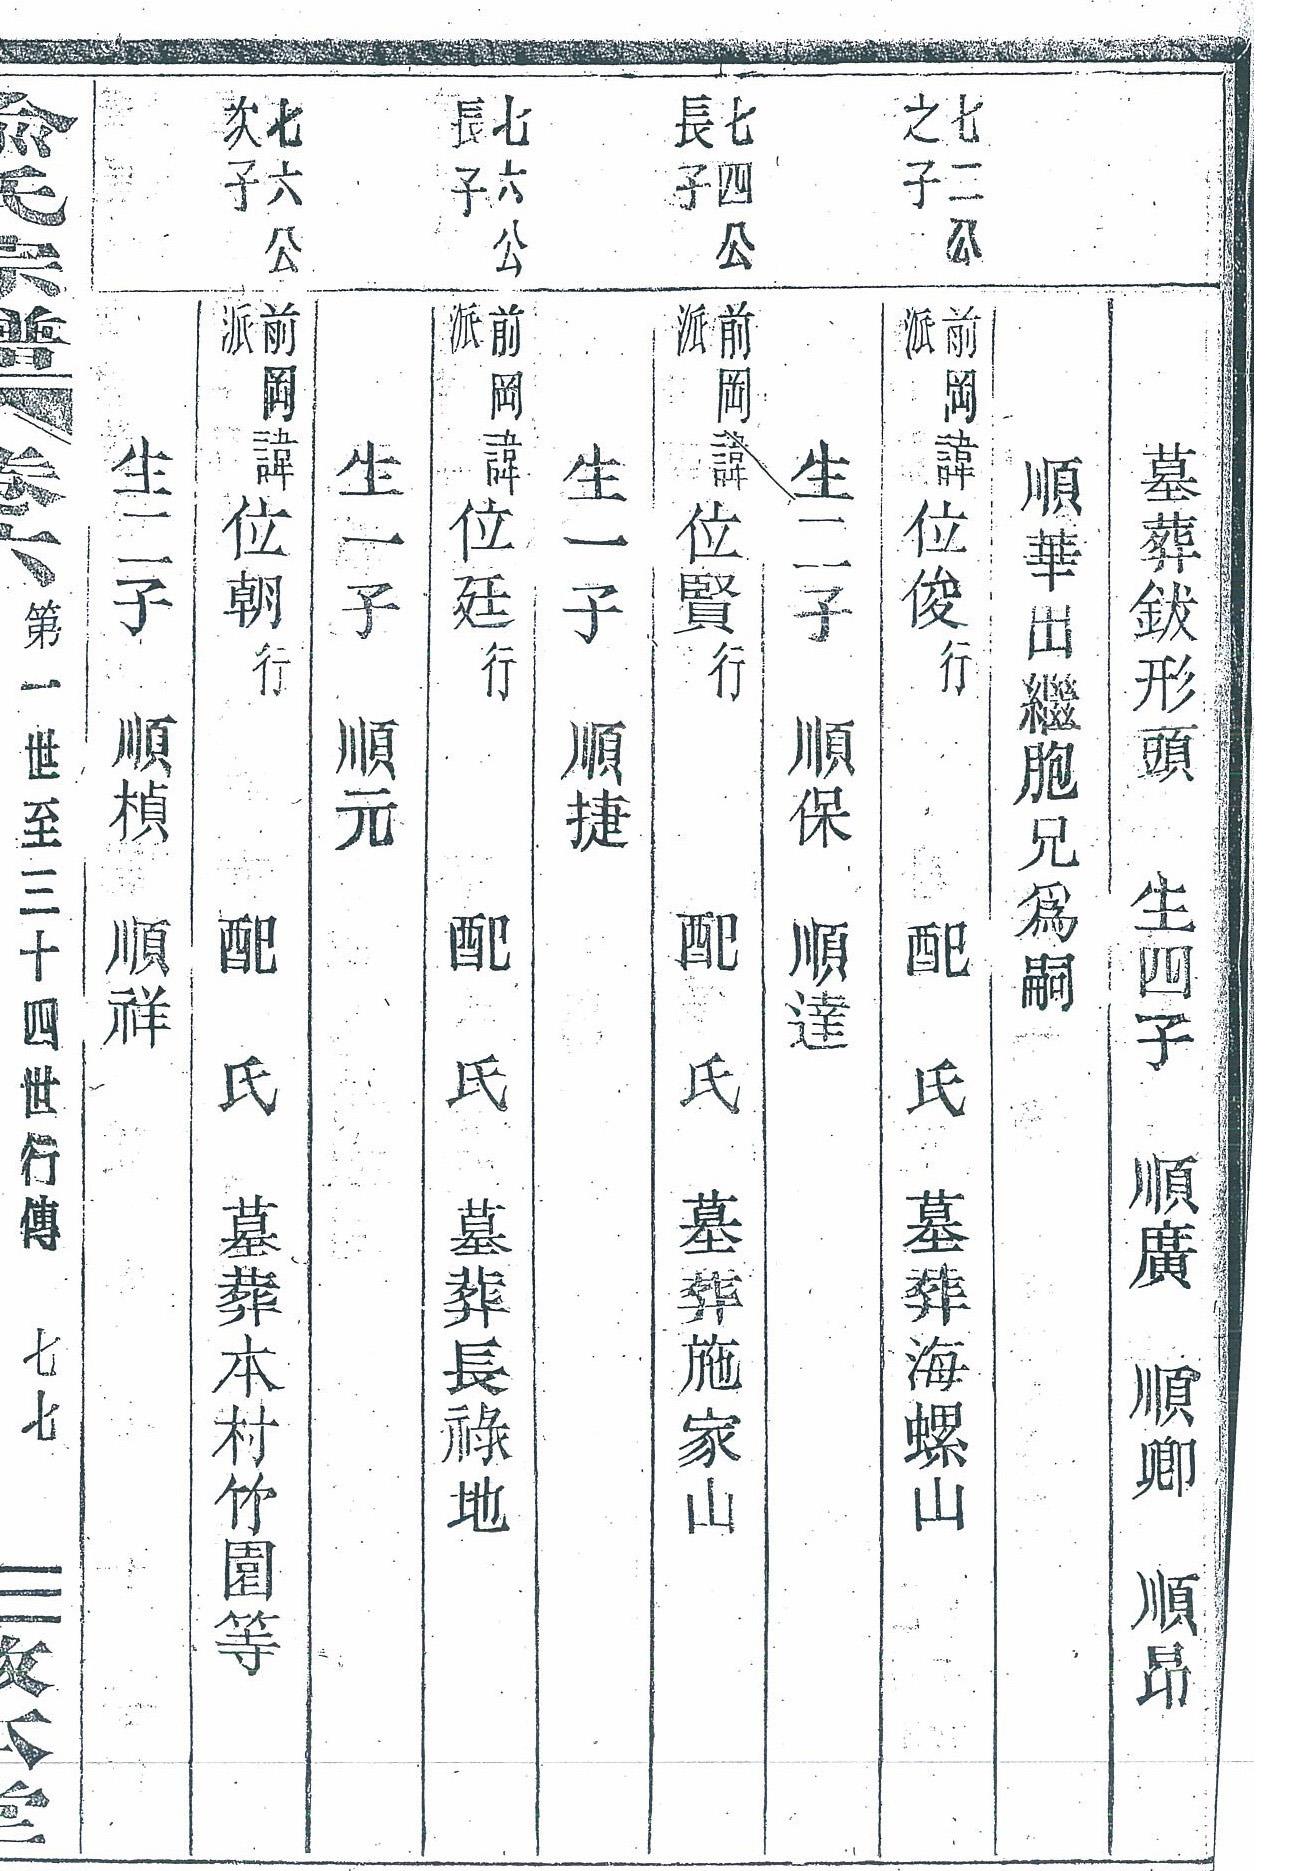 墓葬鈸形頭 生四子 順廣 順卿 順昂
順華出繼胞兄爲嗣
七二公之子
前岡派 諱位俊行 配 氏 墓葬海螺山
生二子 順保 順達
七四公長子
前岡派 諱位賢行 配 氏 墓葬施家山
生一子 順捷
七六公長子
前岡派 諱位廷行 配 氏 墓葬長祿地
生一子 順元
七六公次子
前岡派 諱位朝行 配 氏 墓葬本村竹園等
生二子 順楨 順祥
俞氏宗譜 卷六 第一世至三十四世行傳 七七